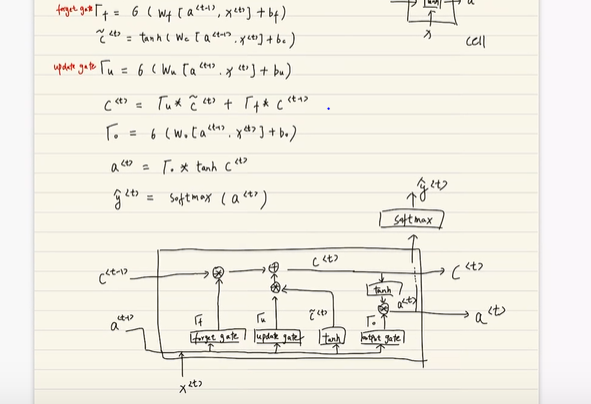 forget gate Γf = б ( Wf [ a<t-1>, x<t>] + bf)
c̃<t> = tanh ( Wc [ a<t-1>, x<t>] + bc )
update gate Γu = б ( Wu [ a<t-1>, x<t>] + bu )
c<t> = Γu * c̃<t> + Γf * c<t-1> .
Γo = б ( Wo [ a<t-1>, x<t>] + bo )
a<t> = Γo * tanh c<t>
ŷ<t> = softmax ( a<t> )
x
cell
ŷ<t>
softmax
c<t-1>
c<t>
c<t>
tanh
a<t>
a<t>
a<t-1>
Γf
Γu
c̃<t>
Γo
forget gate
update gate
tanh
output gate
x<t>